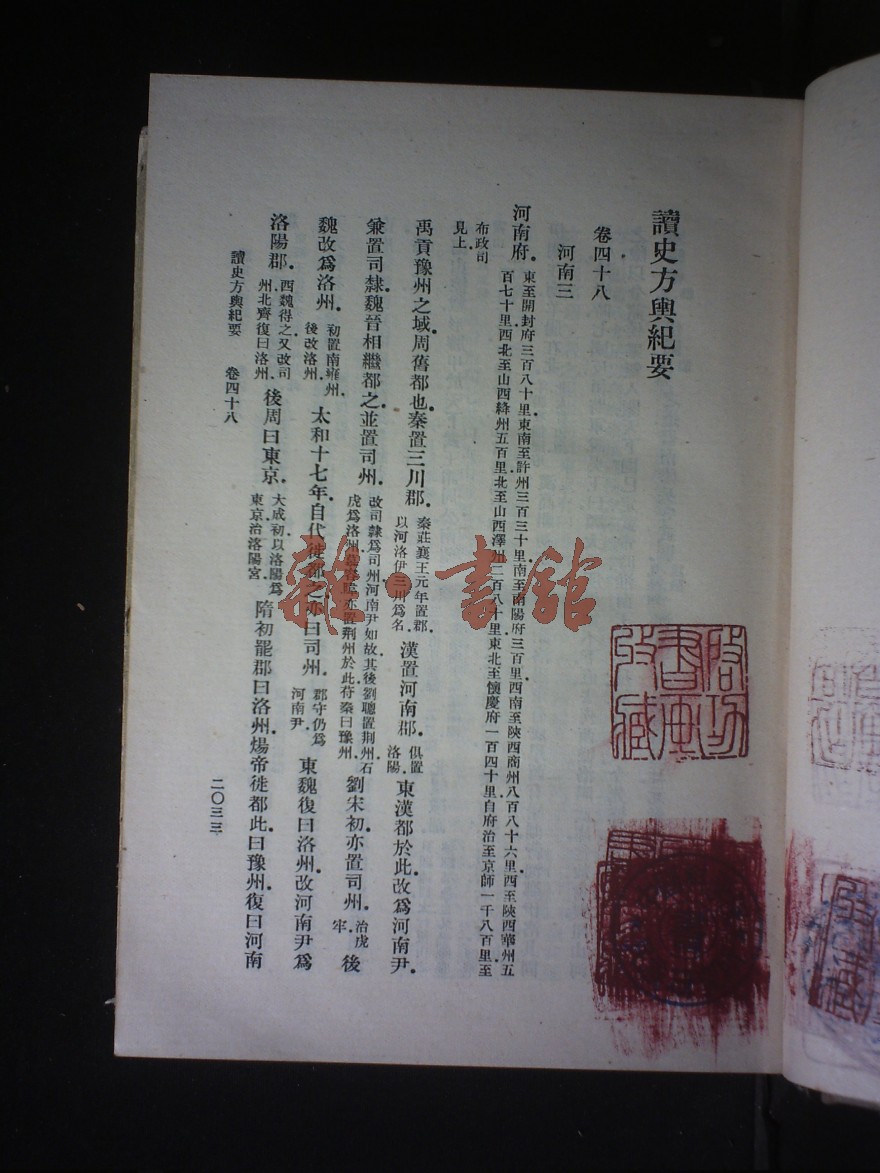 讀史方輿紀要
卷四十八
河南三
河南府。東至開封府三百八十里東南至許州三百三十里南至南陽府三百里西南至陝西商州八百八十六里西至陝西華州五
百七十里西北至山西絳州五百里北至山西澤州二百八十里東北至懷慶府一百四十里自府治至京師一千八百里至
布政司
見上。
禹貢豫州之域周舊都也。秦置三川郡。秦莊襄王元年置郡。以河洛伊三川爲名。漢置河南郡。俱置洛陽。東漢都於此。改爲河南尹。
兼置司隸。魏晉相繼都之。並置司州。改司隸爲司州河南尹如故。其後劉聰置荆州石虎爲洛州。亦置荆州於此。苻秦曰豫州。劉宋初亦置司州。治虎牢。後
魏改爲洛州。初置南雍州。後改洛州。太和十七年自代徙都之亦曰司州。郡守仍爲河南尹。東魏復曰洛州。改河南尹爲
洛陽郡。西魏得之又改司州。北齊復曰洛州。後周曰東京。大成初以洛陽爲東京治洛陽宮。隋初罷郡曰洛州。煬帝徙都此。曰豫州。復曰河南
讀史方輿紀要 卷四十八
二〇三三
雜·書館
啓功
書画
攷藏